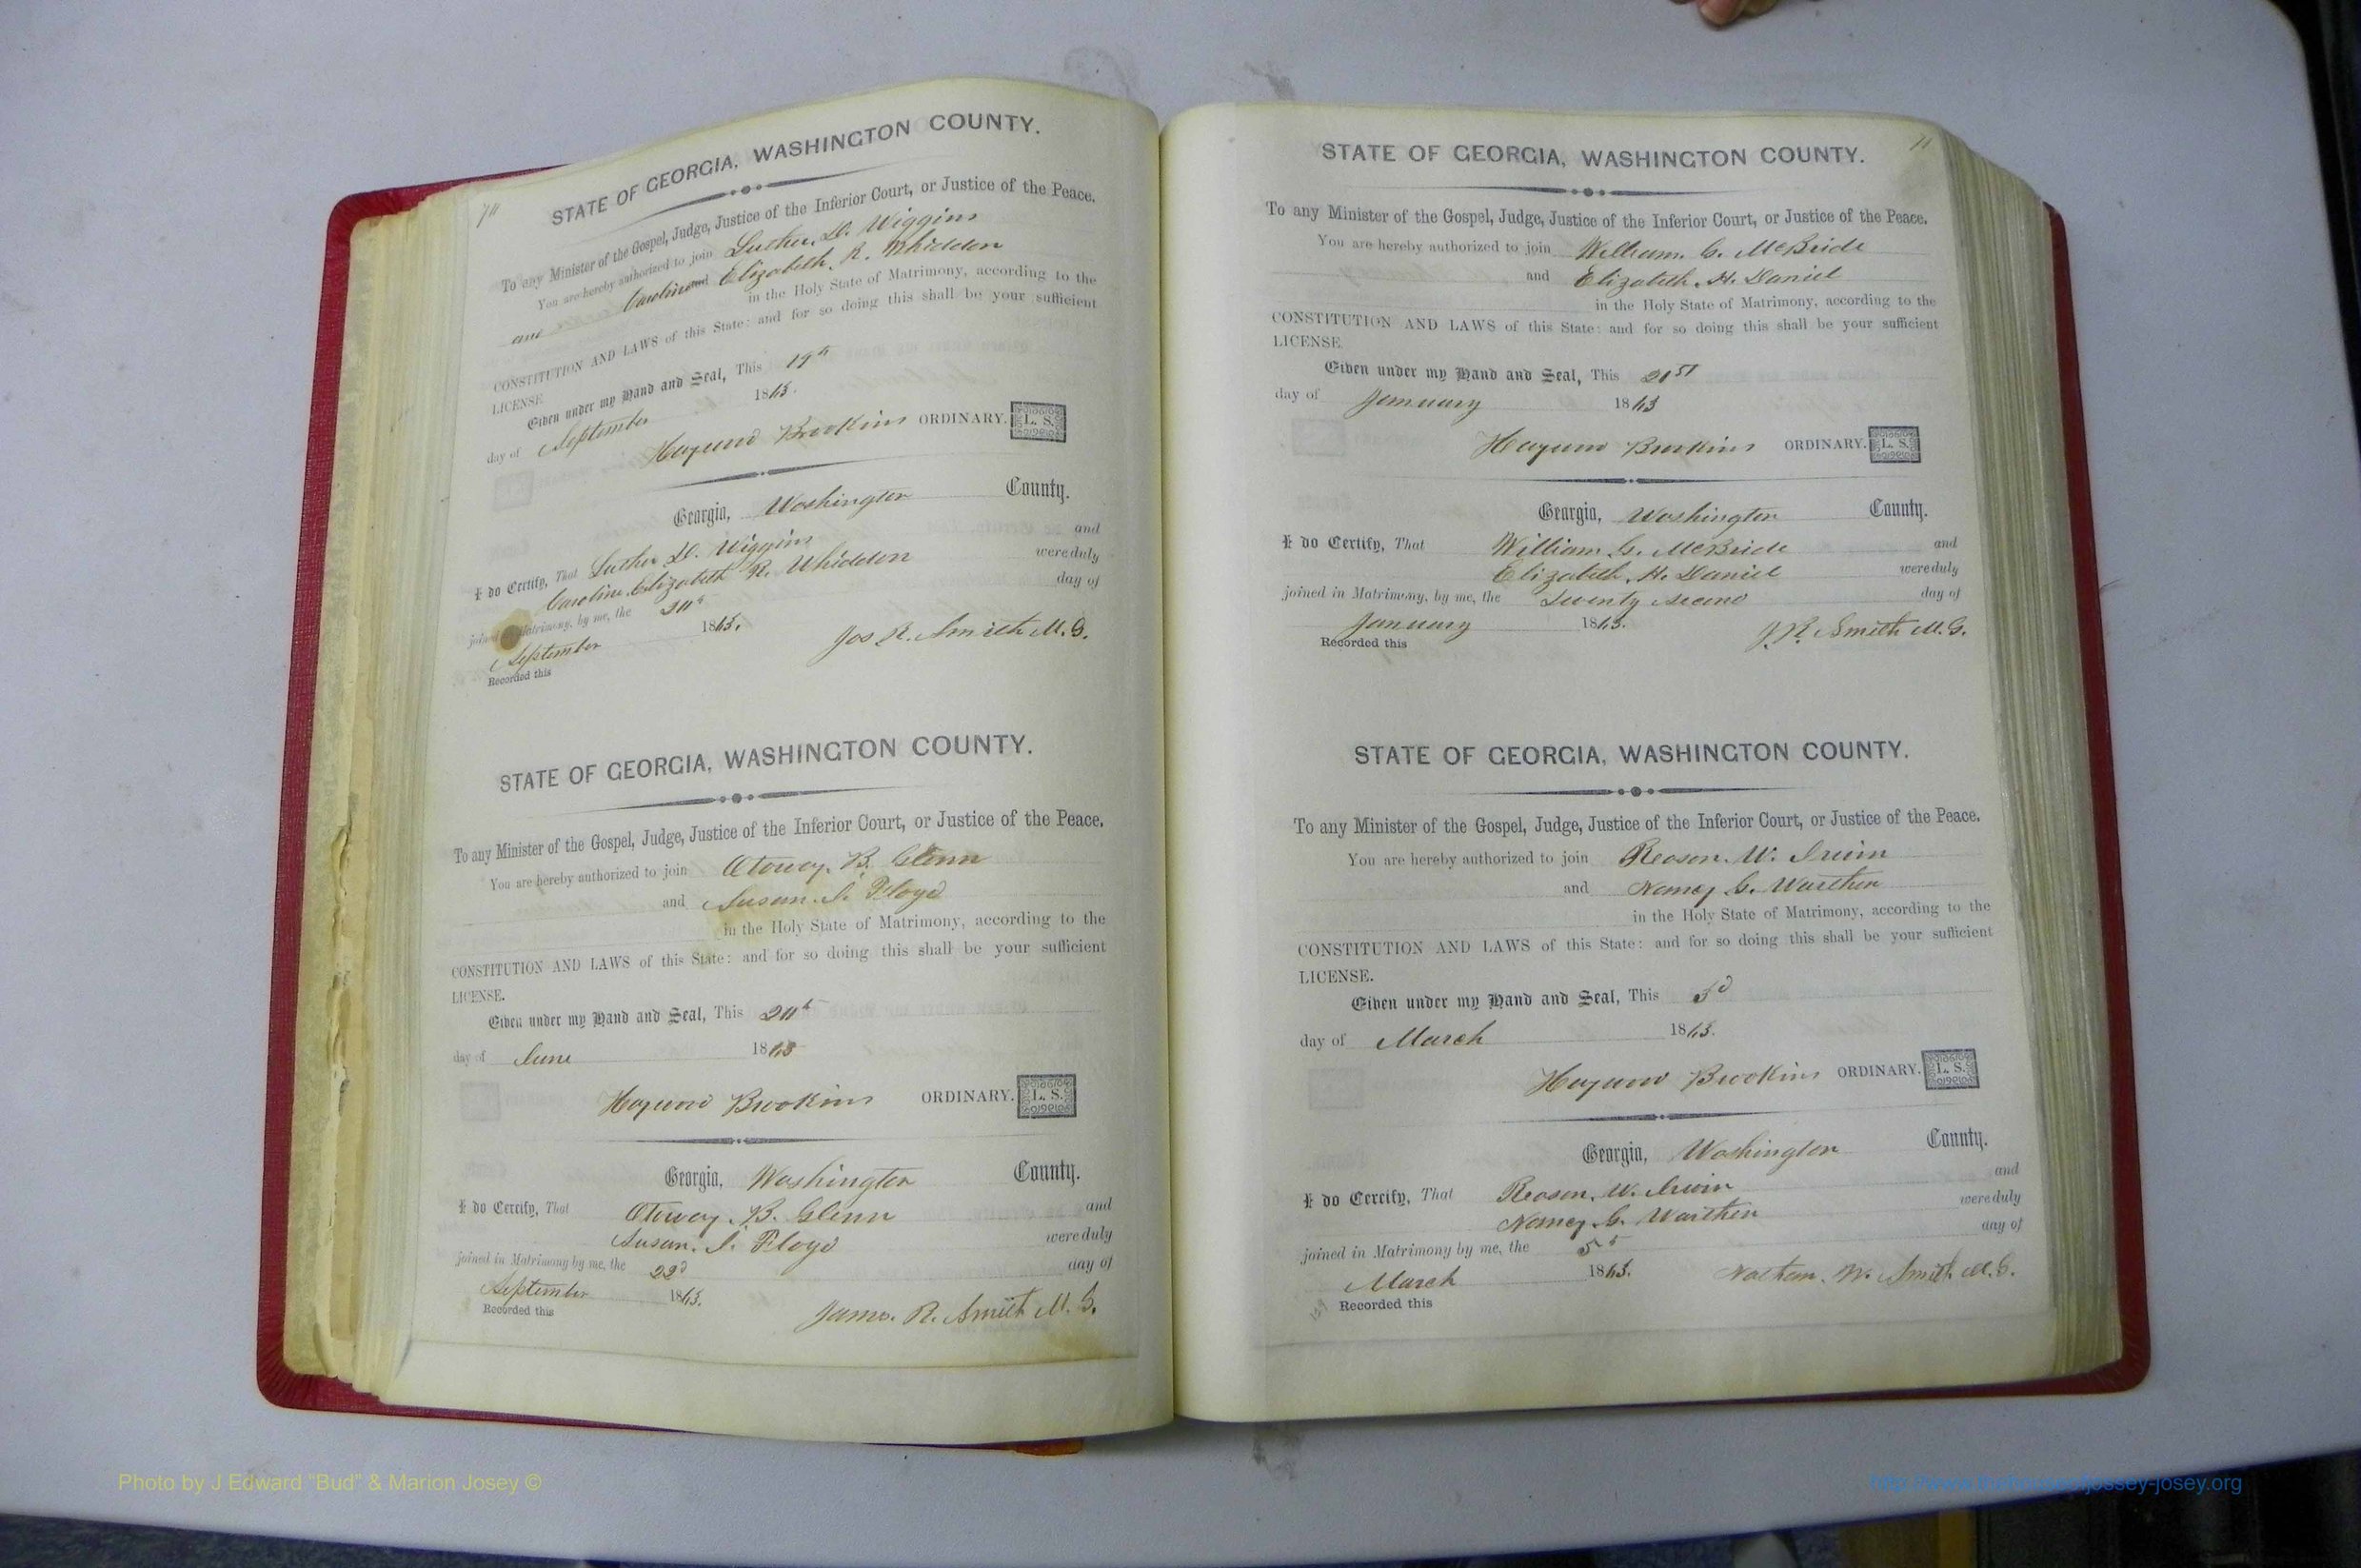 70
STATE OF GEORGIA, WASHINGTON COUNTY.
To any Minister of the Gospel, Judge, Justice of the Inferior Court, or Justice of the Peace.
You are hereby authorized to join Luther. D. Wiggins
and Caroline and Elizabeth. R. Whiddon
in the Holy State of Matrimony, according to the
CONSTITUTION AND LAWS of this State: and for so doing this shall be your sufficient
LICENSE
Given under my Hand and Seal, This 19th
day of September 1863.
Haywood Brookins ORDINARY. L. S.
Georgia, Washington County.
I do Certify, That Luther D. Wiggins and
Caroline Elizabeth R. Whiddon were duly
joined in Matrimony, by me, the 20th day of
September 1863. Jas R. Smith M. G.
Recorded this
STATE OF GEORGIA, WASHINGTON COUNTY.
To any Minister of the Gospel, Judge, Justice of the Inferior Court, or Justice of the Peace.
You are hereby authorized to join Otoway. B. Glenn
and Susan. I. Floyd
in the Holy State of Matrimony, according to the
CONSTITUTION AND LAWS of this State: and for so doing this shall be your sufficient
LICENSE.
Given under my Hand and Seal, This 20th
day of June 1863
Haywood Brookins ORDINARY. L. S.
Georgia, Washington County.
I do Certify, That Otoway. B. Glenn and
Susan. I. Floyd were duly
joined in Matrimony by me, the 22d day of
September 1863.
James. R. Smith M. G.
Recorded this
71
STATE OF GEORGIA, WASHINGTON COUNTY.
To any Minister of the Gospel, Judge, Justice of the Inferior Court, or Justice of the Peace.
You are hereby authorized to join William. G. McBride
and Elizabeth. H. Daniel
in the Holy State of Matrimony, according to the
CONSTITUTION AND LAWS of this State: and for so doing this shall be your sufficient
LICENSE
Given under my Hand and Seal, This 21st
day of January 1863
Haywood Brookins ORDINARY. L. S.
Georgia, Washington County.
I do Certify, That William G. McBride and
Elizabeth. H. Daniel were duly
joined in Matrimony, by me, the Twenty second day of
January 1863. J. R. Smith M.G.
Recorded this
STATE OF GEORGIA, WASHINGTON COUNTY.
To any Minister of the Gospel, Judge, Justice of the Inferior Court, or Justice of the Peace.
You are hereby authorized to join Reason. W. Irwin
and Nancy G. Warthen
in the Holy State of Matrimony, according to the
CONSTITUTION AND LAWS of this State: and for so doing this shall be your sufficient
LICENSE.
Given under my Hand and Seal, This 3d
day of March 1863.
Haywood Brookins ORDINARY. L. S.
Georgia, Washington County.
I do Certify, That Reason. W. Irwin and
Nancy. G. Warthen were duly
joined in Matrimony by me, the 5th day of
March 1863. Nathan. W. Smith M.G.
Recorded this
Photo by J Edward "Bud" & Marion Josey ©